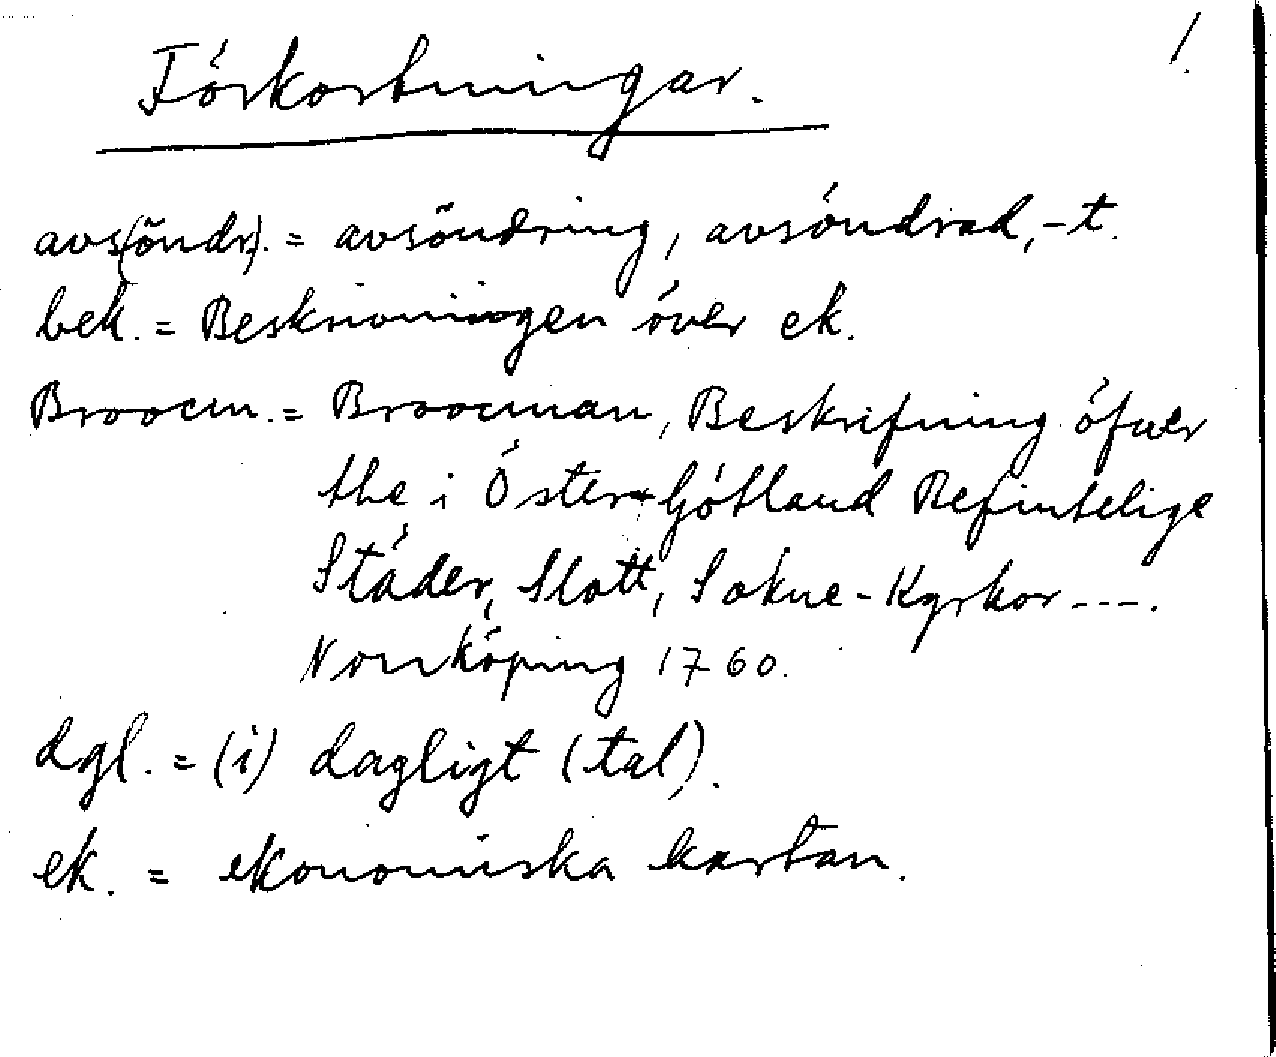 1.
Förkortningar.
avs(öndr). = avsöndring, avsöndrad, -t.
bek. = Beskrivningen över ek.
Broocm. = Broocman, Beskrifning öfwer
the i Öster-Götland Befintelige
Städer, Slott, Sokne-Kyrkor ---.
Norrköping 1760.
dgl. = (i) dagligt (tal).
ek. = ekonomiska kartan.